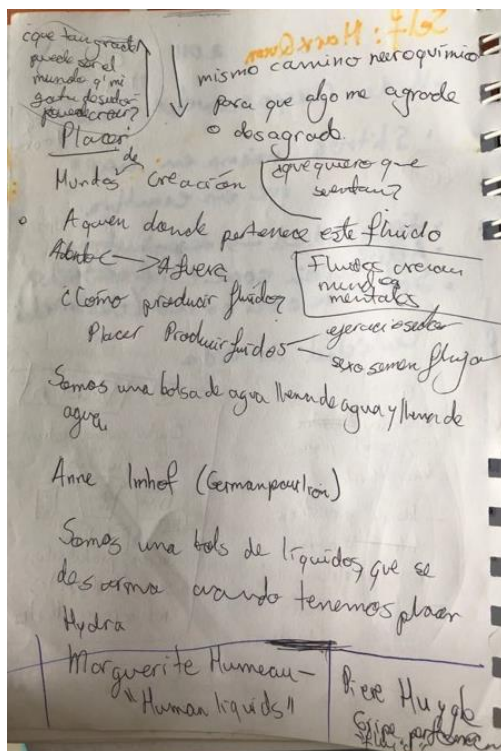 Self: Marc Quinn
¿que tan grande
puede ser el
mundo q' mi
gota de sudor
puede crear?
mismo camino neuroquímico
para que algo me agrade
o desagrade.
Placer
de
Mundos creación
¿que quiero que
sientan?
A quien donde pertenece este fluido
Adentro → Afuera
Fluidos crean
mundos
mentales
¿Cómo producir fluidos?
Placer Producir fluidos
ejercicio sudor
sexo semen flujo
Somos una bolsa de agua llena de agua y llena de
agua
Anne Imhof (German pavilion)
Somos una bols de líquidos que se
desarma cuando tenemos placer
Hydra
Marguerite Humeau —
"Human liquids"
Piere Huyghe
performer